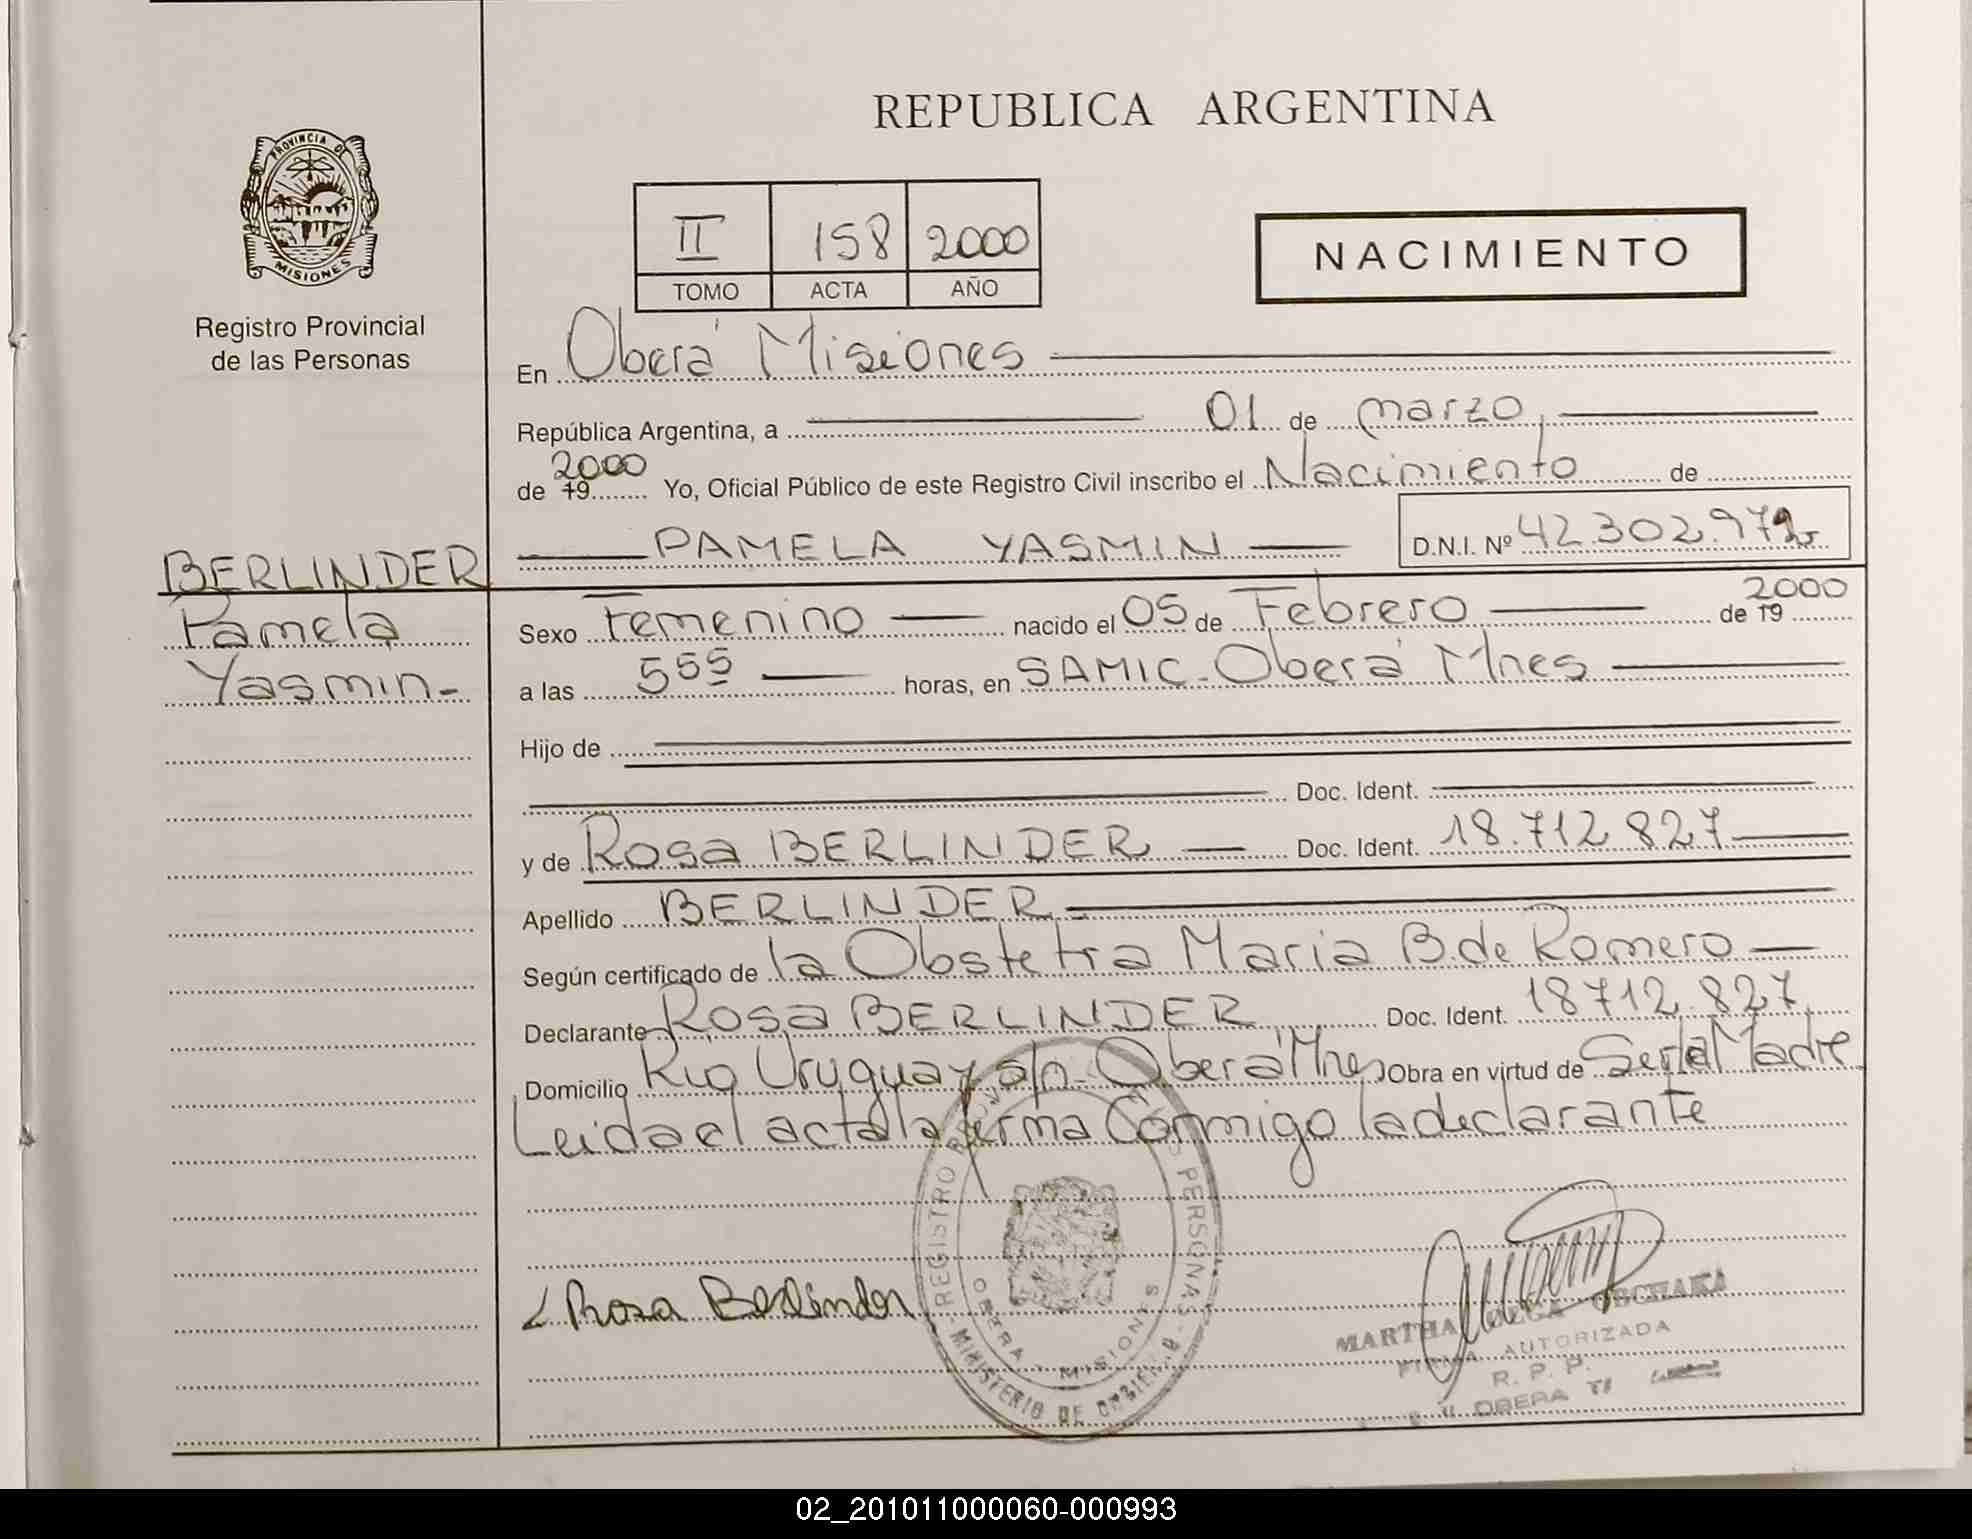 PROVINCIA DE
MISIONES
Registro Provincial
de las Personas
BERLINDER
Pamela
Yasmin-
REPUBLICA ARGENTINA
II 158 2000
TOMO ACTA AÑO
NACIMIENTO
En Oberá Misiones
República Argentina, a 01 de marzo,
de 19 2000 Yo, Oficial Público de este Registro Civil inscribo el Nacimiento de
PAMELA YASMIN D.N.I. Nº 42.302.972
Sexo Femenino nacido el 05 de Febrero de 19 2000
a las 5 55 horas, en SAMIC-Oberá Mnes
Hijo de
Doc. Ident.
y de Rosa BERLINDER Doc. Ident. 18.712.827
Apellido BERLINDER
Según certificado de la Obstetra Maria B. de Romero
Declarante Rosa BERLINDER Doc. Ident. 18712.827,
Domicilio Rio Uruguay s/n- Oberá Mnes Obra en virtud de Ser la Madre
Leida el acta la firma Conmigo la declarante
REGISTRO PERSONAS
OBERA MISIONES
MINISTERIO DE GOBIERNO
Rosa Berlinder
MARTHA OLGA
FIRMA AUTORIZADA
R. P. P.
OBERA
02_201011000060-000993